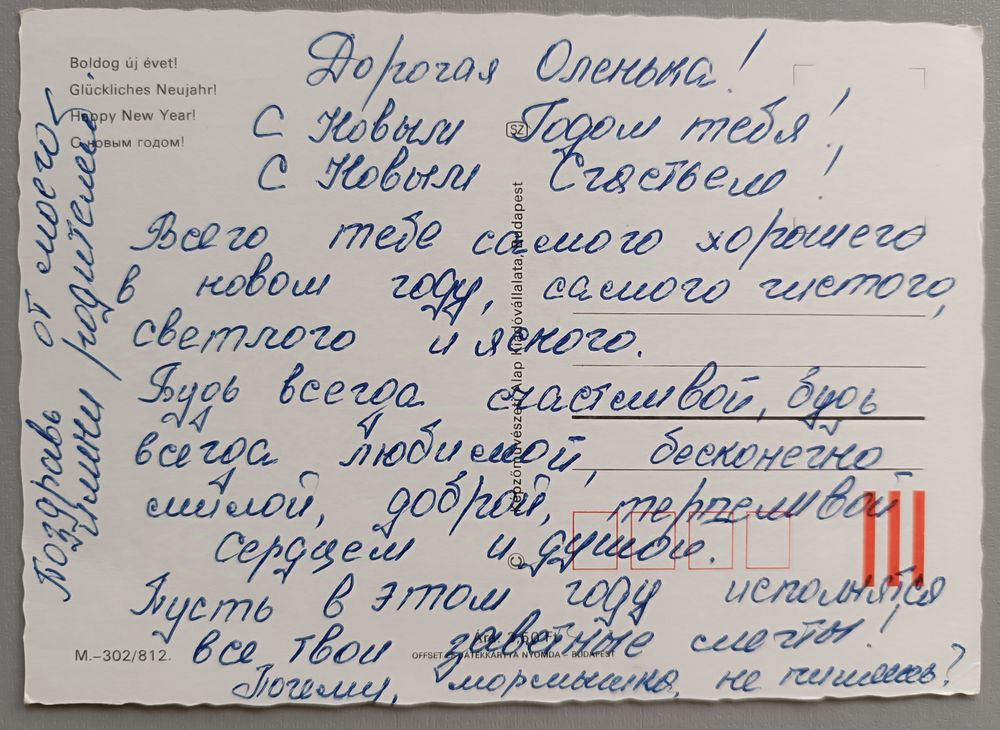 Boldog új évet!
Glückliches Neujahr!
Happy New Year!
С новым годом!
Дорогая Оленька!
С Новым Годом тебя!
С Новым Счастьем!
Всего тебе самого хорошего
в новом году, самого чистого,
светлого и ясного.
Будь всегда счастливой, будь
всегда любимой, бесконечно
милой, доброй, терпеливой
сердцем и душой.
Пусть в этом году исполнятся
все твои заветные мечты!
Почему, мормышка, не пишешь?
Поздравь от моего
имени родителей
SZ
© Képzőművészeti Alap Kiadóvállalata, Budapest
Ára: 3,50 Ft
M.–302/812.
OFFSET ÉS JÁTÉKKÁRTYA NYOMDA – BUDAPEST